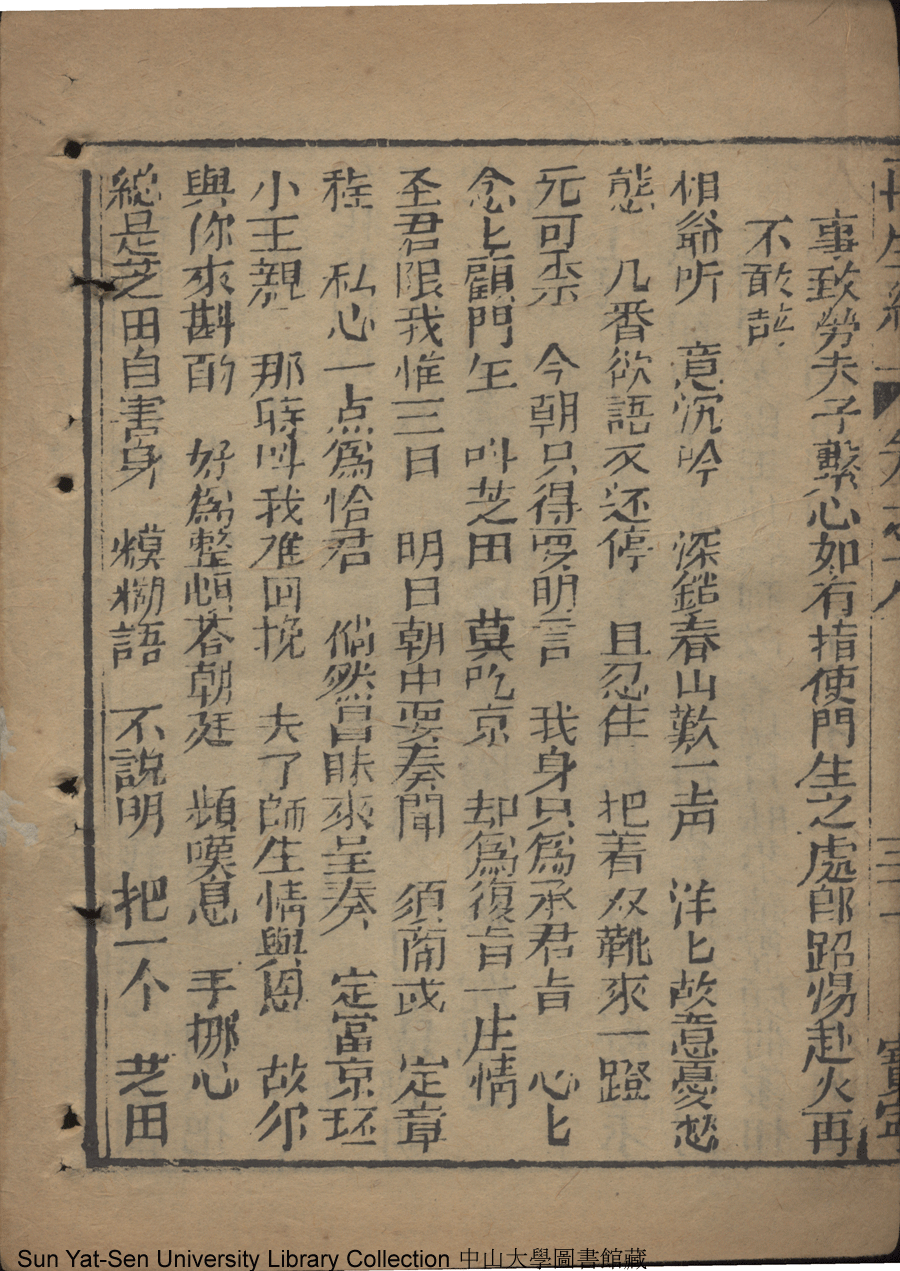 事致勞夫子繫心如有指使門生之處卽蹈湯赴火再
不敢辭
相爺听 意沉吟 深鎖春山歎一声 洋匕故意憂愁
態 几番欲語又还停 且忍住 把着双靴來一蹬
元可柰 今朝只得要明言 我身只爲承君旨 心匕
念匕顧門生 呌芝田 莫吃京 却爲復旨一庄情
圣君限我惟三日 明日朝中要奏聞 須商或 定章
程 私心一点爲恰君 倘然冒昧來呈奏 定當京环
小王親 那時呌我难回挽 失了師生情與恩 故尔
與你來斟酌 好爲整頓荅朝廷 頻嘆息 手挪心
總是芝田自害身 糢糊語 不說明 把一个 芝田
Sun Yat-Sen University Library Collection 中山大學圖書館藏